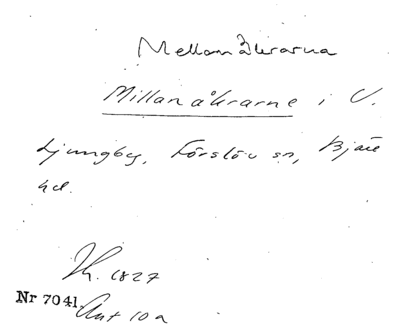 Mellanåkrarna
Millanåkrarne i V.
Ljungby, Förslöv sn, Bjäre
hd.
Sk. 1827
Nr 7041. Akt 10a